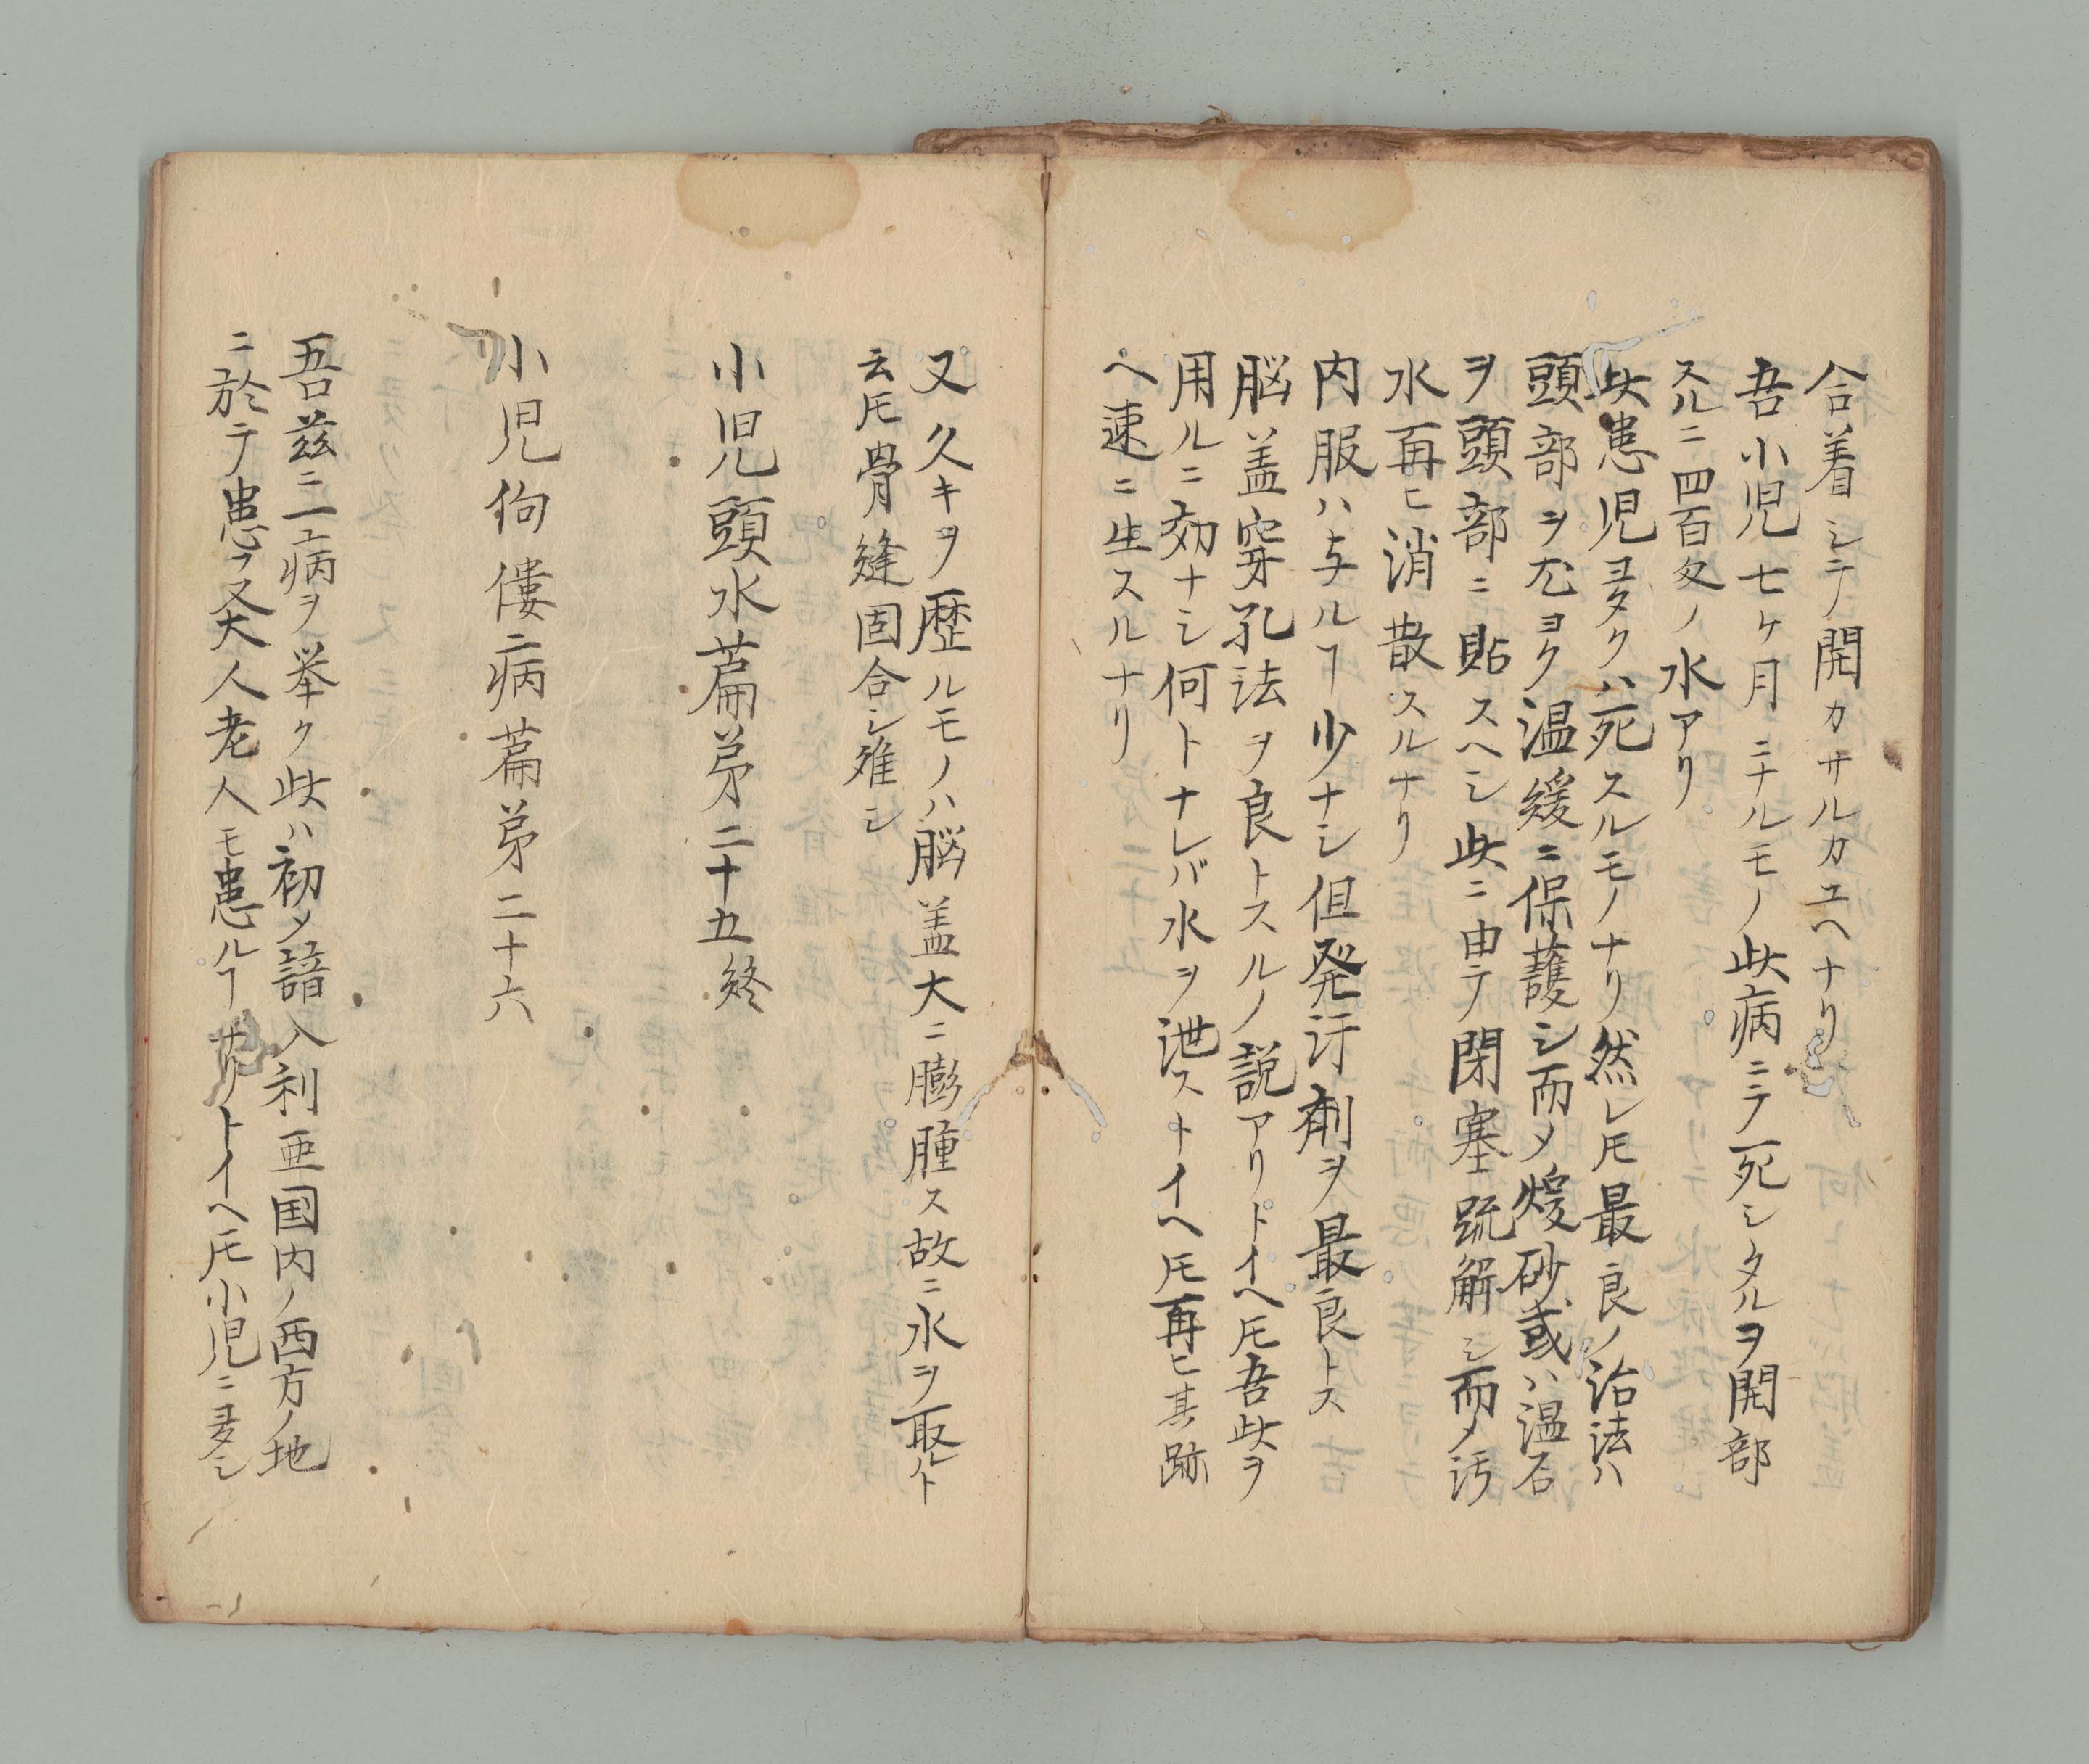 合着シテ開カサルカユヘナリ
吾小児七ケ月ニナルモノ此病ニテ死シタルヲ開部
スルニ四百文ノ水アリ
此患児ヨタクハ死スルモノナリ然レ𪜈最良ノ治法ハ
頭部ヲ尤ヨク温緩ニ保護シ而メ煖砂或ハ温石
ヲ頭部ニ貼スヘシ此ニ由テ閉塞䟽解シ而メ汚
水再ヒ消散スルナリ
内服ハ与ルヿ少ナシ但発汗剤ヲ最良トス
脳盖穿孔法ヲ良トスルノ説アリトイヘ𪜈吾此ヲ
用ルニ効ナシ何トナレバ水ヲ泄ストイヘ𪜈再ヒ其跡
ヘ速ニ生スルナリ
又久キヲ歴ルモノハ脳盖大ニ膨腫ス故ニ水ヲ取ルト
云𪜈骨縫固合シ难シ
小児頭水萹苐二十五終
小児佝僂二病萹苐二十六
吾茲ニ二病ヲ挙ク此ハ初メ諳入利亜国内ノ西方ノ地
ニ於テ患フ又大人老人モ患ルヿアリトイヘ𪜈小児ニ多シ